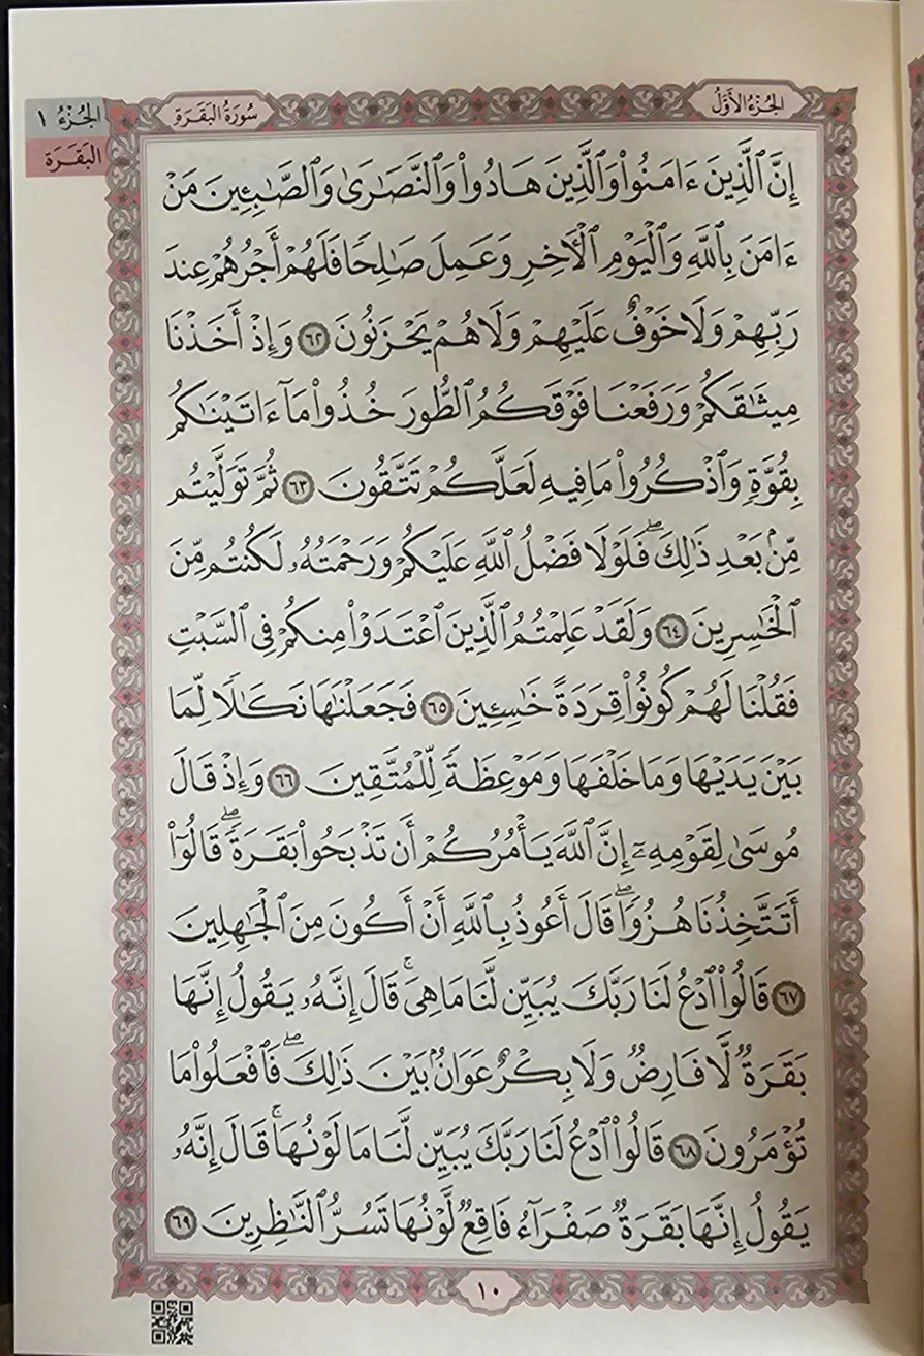 الجُزْءُ ١
البَقَرَة
الجُزْءُ الأَوَّلُ
سُورَةُ البَقَرَةِ
إِنَّ ٱلَّذِينَ ءَامَنُوا۟ وَٱلَّذِينَ هَادُوا۟ وَٱلنَّصَـٰرَىٰ وَٱلصَّـٰبِـِٔينَ مَنْ
ءَامَنَ بِٱللَّهِ وَٱلْيَوْمِ ٱلْـَٔاخِرِ وَعَمِلَ صَـٰلِحًا فَلَهُمْ أَجْرُهُمْ عِندَ
رَبِّهِمْ وَلَا خَوْفٌ عَلَيْهِمْ وَلَا هُمْ يَحْزَنُونَ ٦٢ وَإِذْ أَخَذْنَا
مِيثَـٰقَكُمْ وَرَفَعْنَا فَوْقَكُمُ ٱلطُّورَ خُذُوا۟ مَآ ءَاتَيْنَـٰكُم
بِقُوَّةٍ وَٱذْكُرُوا۟ مَا فِيهِ لَعَلَّكُمْ تَتَّقُونَ ٦٣ ثُمَّ تَوَلَّيْتُم
مِّنۢ بَعْدِ ذَٰلِكَ ۖ فَلَوْلَا فَضْلُ ٱللَّهِ عَلَيْكُمْ وَرَحْمَتُهُۥ لَكُنتُم مِّنَ
ٱلْخَـٰسِرِينَ ٦٤ وَلَقَدْ عَلِمْتُمُ ٱلَّذِينَ ٱعْتَدَوْا۟ مِنكُمْ فِى ٱلسَّبْتِ
فَقُلْنَا لَهُمْ كُونُوا۟ قِرَدَةً خَـٰسِـِٔينَ ٦٥ فَجَعَلْنَـٰهَا نَكَـٰلًا لِّمَا
بَيْنَ يَدَيْهَا وَمَا خَلْفَهَا وَمَوْعِظَةً لِّلْمُتَّقِينَ ٦٦ وَإِذْ قَالَ
مُوسَىٰ لِقَوْمِهِۦٓ إِنَّ ٱللَّهَ يَأْمُرُكُمْ أَن تَذْبَحُوا۟ بَقَرَةً ۖ قَالُوٓا۟
أَتَتَّخِذُنَا هُزُوًا ۖ قَالَ أَعُوذُ بِٱللَّهِ أَنْ أَكُونَ مِنَ ٱلْجَـٰهِلِينَ
٦٧ قَالُوا۟ ٱدْعُ لَنَا رَبَّكَ يُبَيِّن لَّنَا مَا هِىَ ۚ قَالَ إِنَّهُۥ يَقُولُ إِنَّهَا
بَقَرَةٌ لَّا فَارِضٌ وَلَا بِكْرٌ عَوَانٌۢ بَيْنَ ذَٰلِكَ ۖ فَٱفْعَلُوا۟ مَا
تُؤْمَرُونَ ٦٨ قَالُوا۟ ٱدْعُ لَنَا رَبَّكَ يُبَيِّن لَّنَا مَا لَوْنُهَا ۚ قَالَ إِنَّهُۥ
يَقُولُ إِنَّهَا بَقَرَةٌ صَفْرَآءُ فَاقِعٌ لَّوْنُهَا تَسُرُّ ٱلنَّـٰظِرِينَ ٦٩
١٠